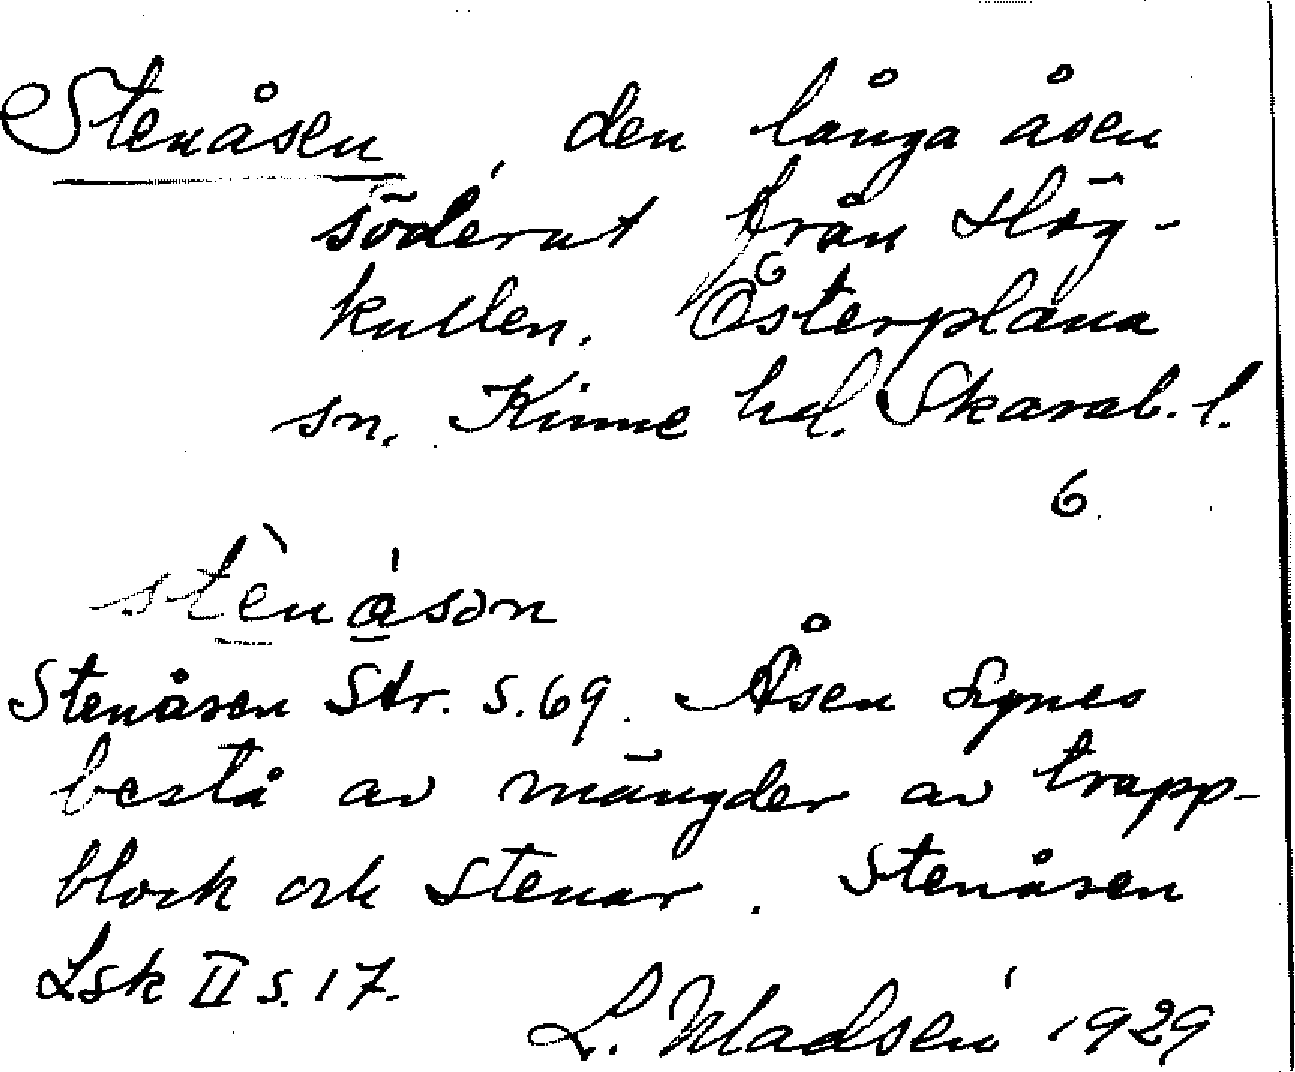 Stenåsen, den långa åsen
söderut från Hög-
kullen. Österplana
sn. Kinne hd. Skarab. l.
6.
stènásən
Stenåsen Str. s. 69. Åsen synes
bestå av mängder av trapp-
block och stenar. Stenåsen
Lsk II s. 17.
L. Madsén 1929